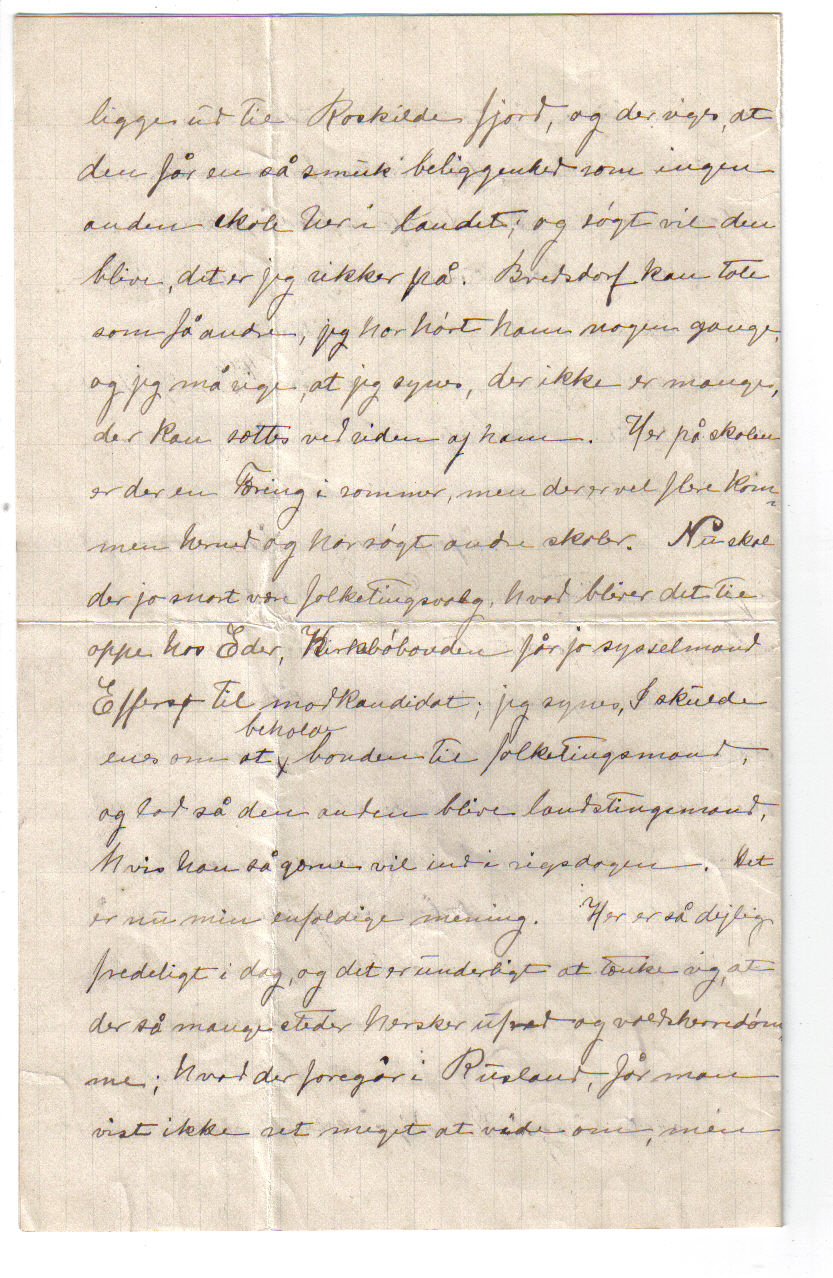 ligge ud til Roskilde fjord, og der siges, at
den får en så smuk beliggenhed som ingen
anden skole her i landet; og søgt vil den
blive, det er jeg sikker på. Bredsdorf kan tale
som få andre, jeg har hørt ham nogen gange,
og jeg må sige, at jeg synes, der ikke er mange,
der kan sættes ved siden af ham. Her på skolen
er der en Færing i sommer, men der er vel flere kom-
men herned og har søgt andre skoler. Nu skal
der jo snart være folketingsvalg, hvad bliver det til
oppe hos Eder, Kirkebøbonden får jo sysselmand
Effersø til modkandidat; jeg synes, I skulde
beholde
enes om at bonden til folketingsmand,
og lad så den anden blive landstingsmand,
hvis han så gerne vil ind i rigsdagen. Det
er nu min enfoldige mening. Her er så dejlig
fredeligt i dag, og det er underligt at tænke sig, at
der så mange steder hersker ufred og voldsherredøm-
me; hvad der foregår i Rusland, får man
vist ikke ret meget at vide om, men